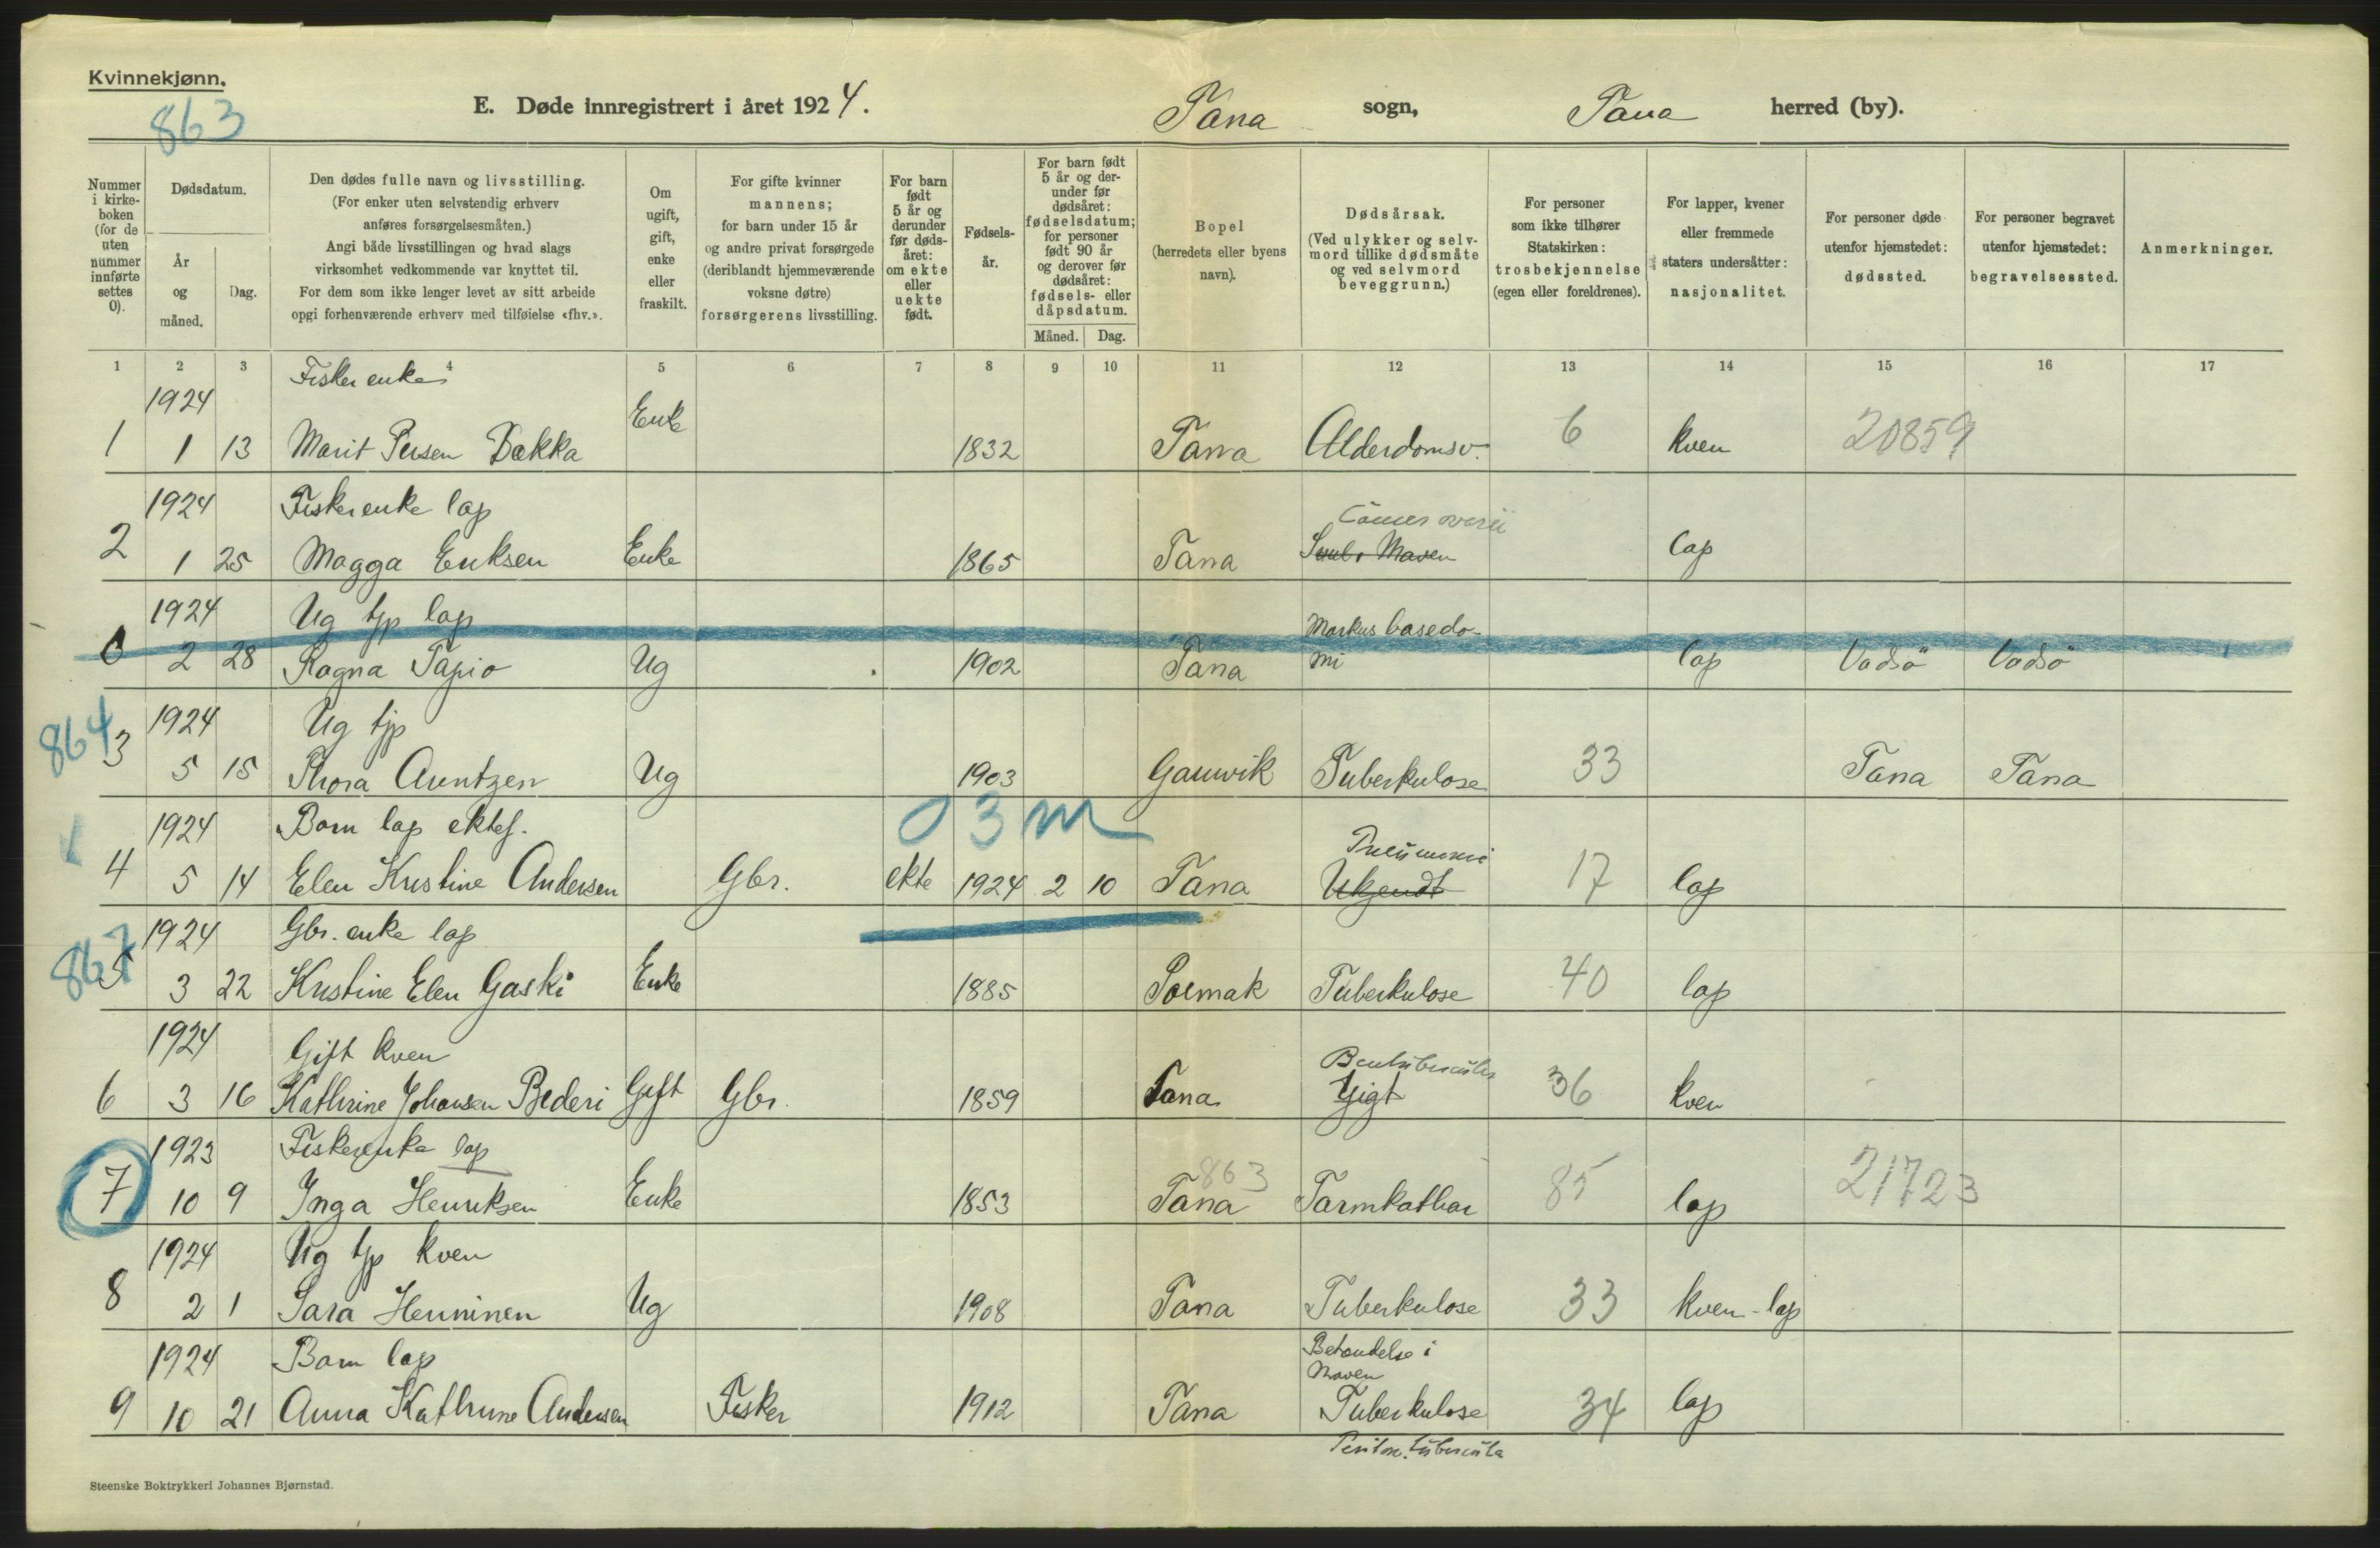 Kvinnekjønn.
863
E. Døde innregistrert i året 1924.
Tana sogn, Tana herred (by).
Nummer i kirke-boken (for de uten nummer innførte settes 0).
Dødsdatum.
År og måned.
Dag.
Den dødes fulle navn og livsstilling.
(For enker uten selvstendig erhverv
anføres forsørgelsesmåten.)
Angi både livsstillingen og hvad slags
virksomhet vedkommende var knyttet til.
For dem som ikke lenger levet av sitt arbeide
opgi forhenværende erhverv med tilføielse «fhv.».
Om ugift, gift, enke eller fraskilt.
For gifte kvinner
mannens;
for barn under 15 år
og andre privat forsørgede
(deriblandt hjemmeværende
voksne døtre)
forsørgerens livsstilling.
For barn født 5 år og derunder før døds-året: om ekte eller uekte født.
Fødsels-år.
For barn født 5 år og der-under før dødsåret: fødselsdatum; for personer født 90 år og derover før dødsåret: fødsels- eller dåpsdatum.
Måned. Dag.
Bopel
(herredets eller byens
navn).
Dødsårsak.
(Ved ulykker og selv-
mord tillike dødsmåte
og ved selvmord
beveggrunn.)
For personer
som ikke tilhører
Statskirken:
trosbekjennelse
(egen eller foreldrenes).
For lapper, kvener
eller fremmede
staters undersåtter:
nasjonalitet.
For personer døde
utenfor hjemstedet:
dødssted.
For personer begravet
utenfor hjemstedet:
begravelsessted.
Anmerkninger.
1 2 3 4 5 6 7 8 9 10 11 12 13 14 15 16 17
1924 Fisker enke
1 1 13 Marit Persen Dakka Enke 1832 Tana Alderdomsv. 6 kven 20859
1924 Fiskerenke lap Cancer ovarii
2 1 25 Magga Eriksen Enke 1865 Tana Maven lap
1924 Ug tjp lap Morkus basedo-
0 2 28 Ragna Tapio Ug 1902 Tana mi lap Vadsö Vadsö
864
1924 Ug tjp
3 5 15 Thora Arentzen Ug 1903 Gamvik Tuberkulose 33 Tana Tana
0 3 m
1924 Barn lap ektef. Pneumoni
4 5 14 Elen Kristine Andersen Gbr. ekte 1924 2 10 Tana Ukjendt 17 lap
867
1924 Gbr. enke lap
5 3 22 Kristine Elen Gaski Enke 1885 Polmak Tuberkulose 40 lap
1924 Gift kven
6 3 16 Kathrine Johansen Bederi Gift Gbr. 1859 Tana Gigt 36 kven
1923 Fiskerenke lap 863
7 10 9 Inga Henriksen Enke 1853 Tana Tarmkathar 85 lap 21723
1924 Ug tjp kven
8 2 1 Sara Henninen Ug 1908 Tana Tuberkulose 33 kven-lap
1924 Barn lap Betændelse i
Maven
9 10 21 Anna Kathrine Andersen Fisker 1912 Tana Tuberkulose 34 lap
Steenske Boktrykkeri Johannes Bjørnstad.